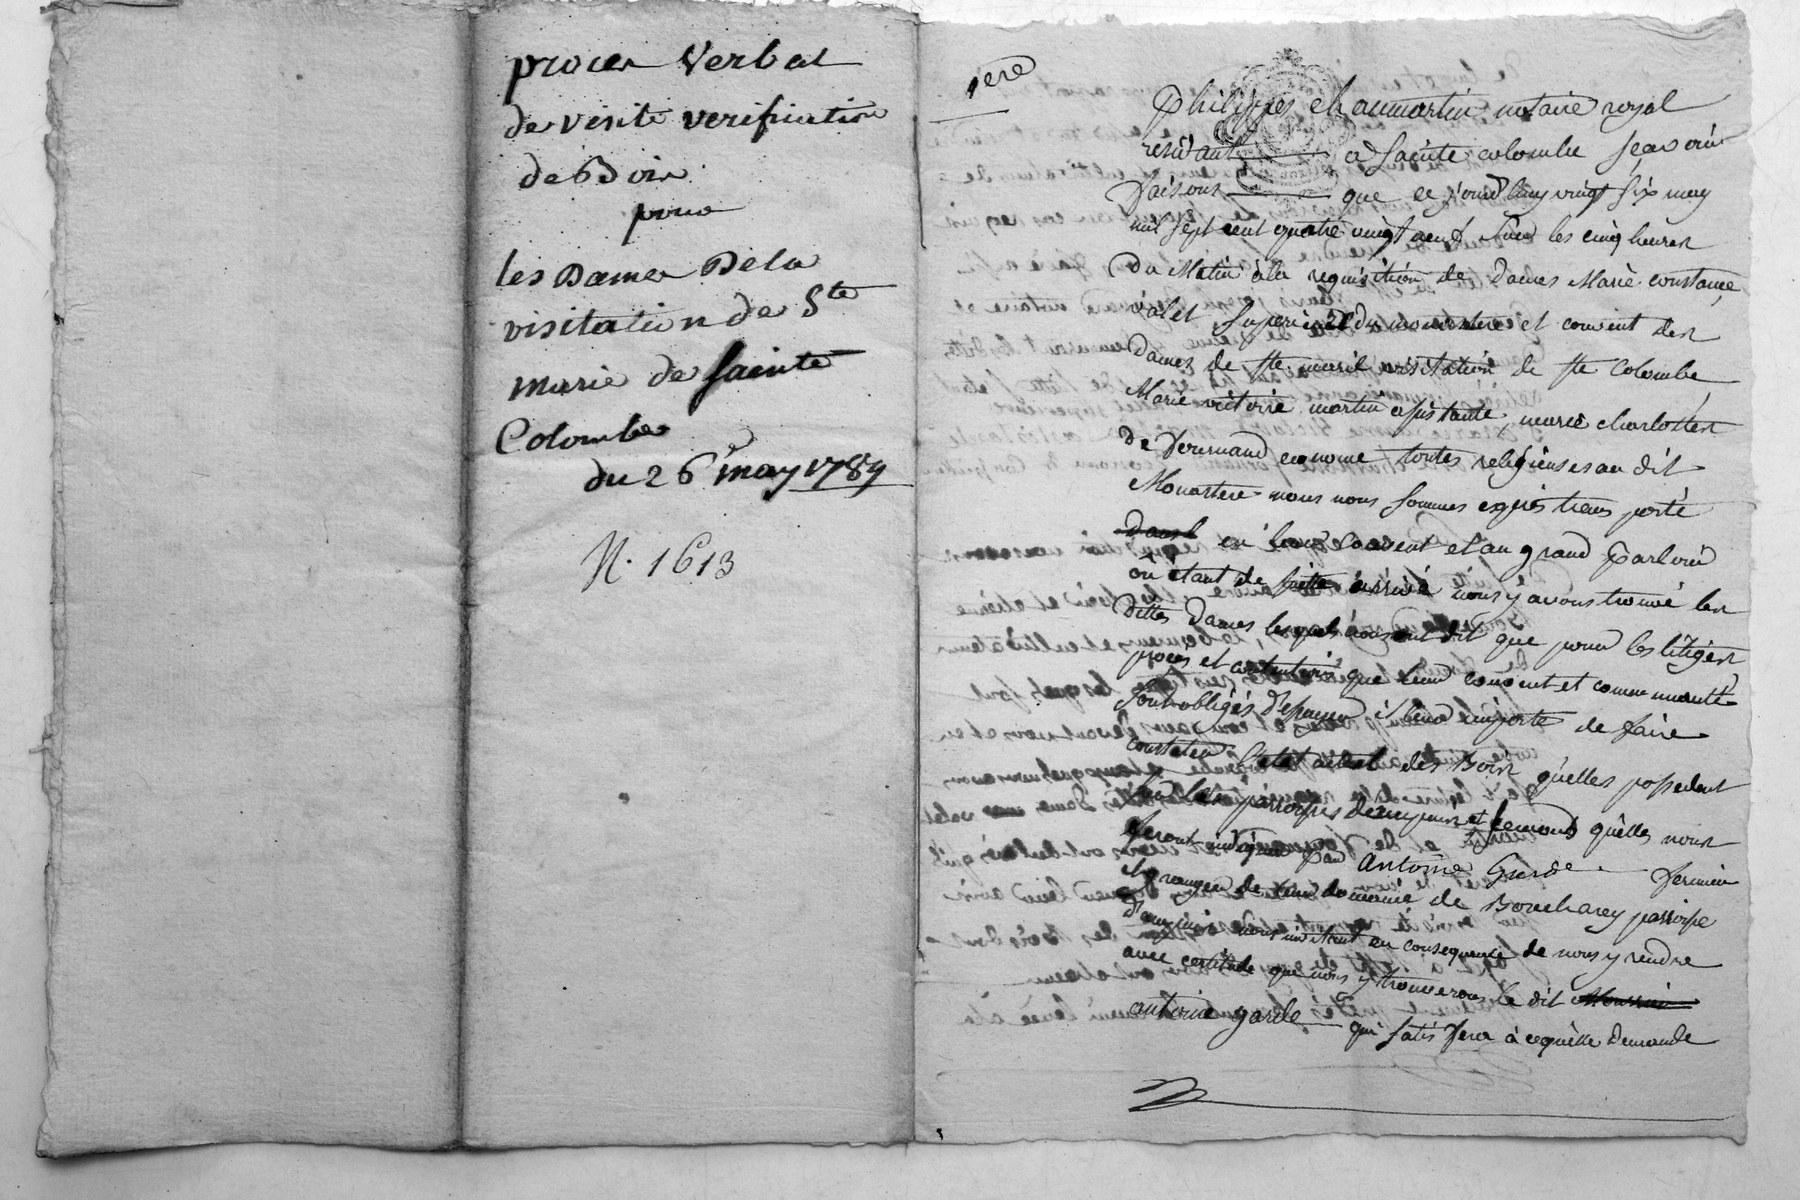 proces Verbal
de visite verification
de Bois
pour
les Dames De la
visitation de Ste
marie de Sainte
Colombe
du 26 may 1789
N. 1613
1ere
Philippes chaumartin notaire royal
residant a Sainte colombe sçavoir
faisons que ce jourd'huy vingt six may
mil sept cent quatre vingt neuf sur les cinq heures
Du Matin à la requisition de Dames Marie constance
valet superieure du monastere et couvent des
Dames de Ste marie visitation de Ste Colombe
Marie victoire martin assistante, marie charlotte
de econome toutes religieuses au dit
Monastere nous nous sommes exprès transporté
dans en leur couvent et au grand Parloir
où étant de suitte arrivé nous y avons trouvé les
Dittes Dames lesquels nous ont dit que pour les litiges
procès et que leur couvent et communauté
sont obligés d'essuyer il leur importe de faire
constater l'etat actuel des Bois qu'elles possedent
sur les parroisses et qu'elles nous
feront indiquer par antoine Garde fermier
et granger de leur domaine de Boucharey parroisse
d'ampuis nous invitant en consequence de nous y rendre
avec certitude que nous y trouverons le dit
antoine garde qui satisfera à cequ'elle Demande